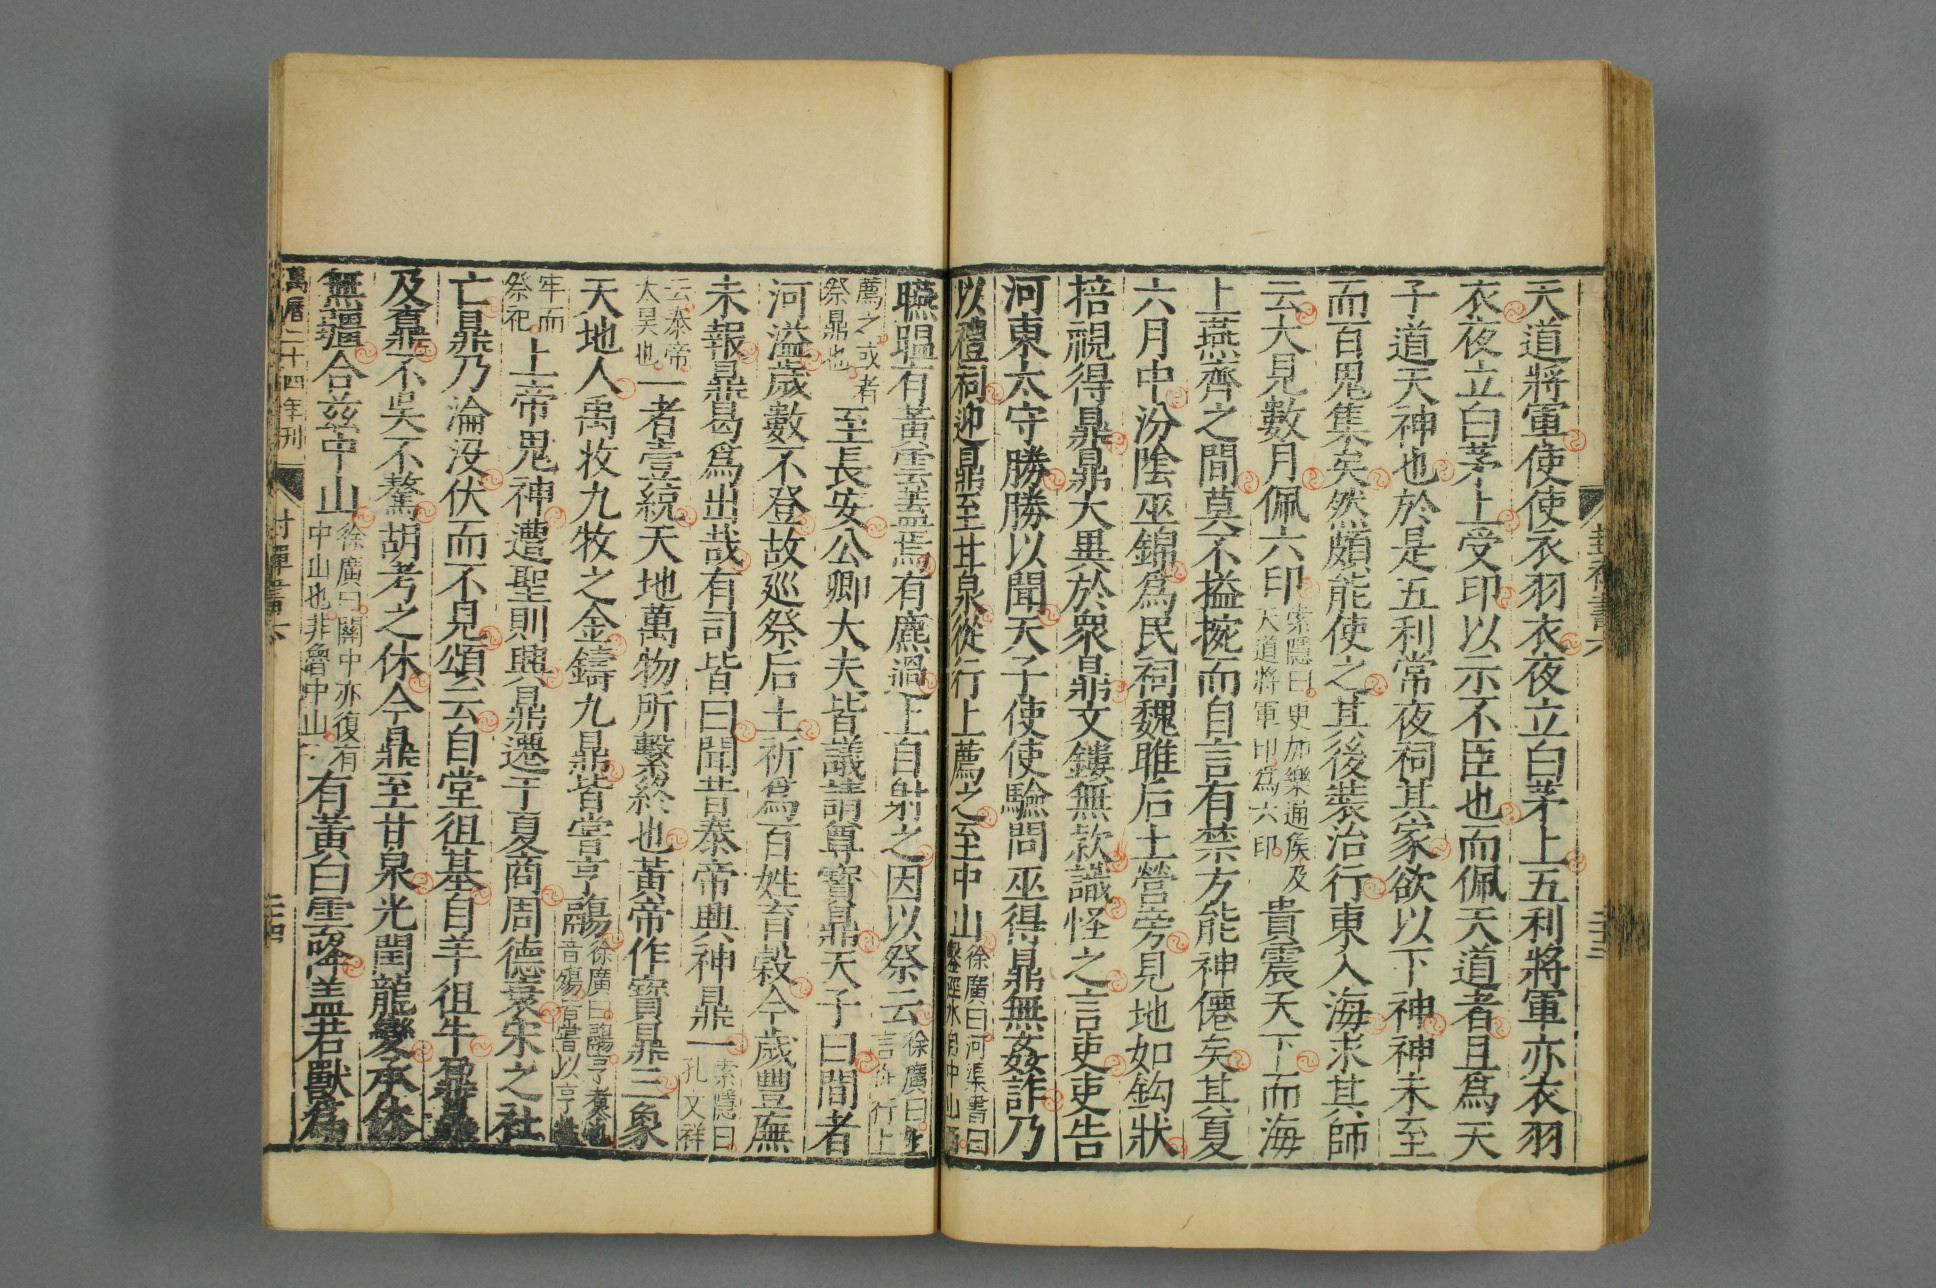 封禪書六
二十三
天道將軍使使衣羽衣夜立白茅上五利將軍亦衣羽
衣夜立白茅上受印以示不臣也而佩天道者且爲天
子道天神也於是五利常夜祠其家欲以下神神未至
而百鬼集矣然頗能使之其後裝治行東入海求其師
云大見數月佩六印索隱曰更加樂通侯及天道將軍印爲六印貴震天下而海
上燕齊之間莫不搤捥而自言有禁方能神僊矣其夏
六月中汾陰巫錦爲民祠魏脽后土營旁見地如鈎狀
掊視得鼎鼎大異於衆鼎文鏤無款識怪之言吏吏告
河東太守勝勝以聞天子使使驗問巫得鼎無姦詐乃
以禮祠迎鼎至甘泉從行上薦之至中山徐廣曰河渠書曰鑿涇水自中山西
曣㬈有黃雲蓋焉有麃過上自射之因以祭云徐廣曰言從行上
薦之或者祭鼎也至長安公卿大夫皆議請尊寶鼎天子曰間者
河溢歲數不登故巡祭后土祈爲百姓育穀今歲豐廡
未報鼎曷爲出哉有司皆曰聞昔泰帝興神鼎一索隱曰孔文祥
云泰帝大昊也一者壹統天地萬物所繫終也黃帝作寶鼎三象
天地人禹收九牧之金鑄九鼎皆嘗亨鬺徐廣曰鬺亨煑也音殤皆嘗以亨
牢而祭祀上帝鬼神遭聖則興鼎遷于夏商周德衰宋之社
亡鼎乃淪没伏而不見頌云自堂徂基自羊徂牛鼐鼎
及鼒不吳不驁胡考之休今鼎至甘泉光閏龍變承休
無疆合兹中山徐廣曰關中亦復有中山也非魯中山有黃白雲降蓋若獸爲
萬曆二十四年刊
封禪書六
二十四